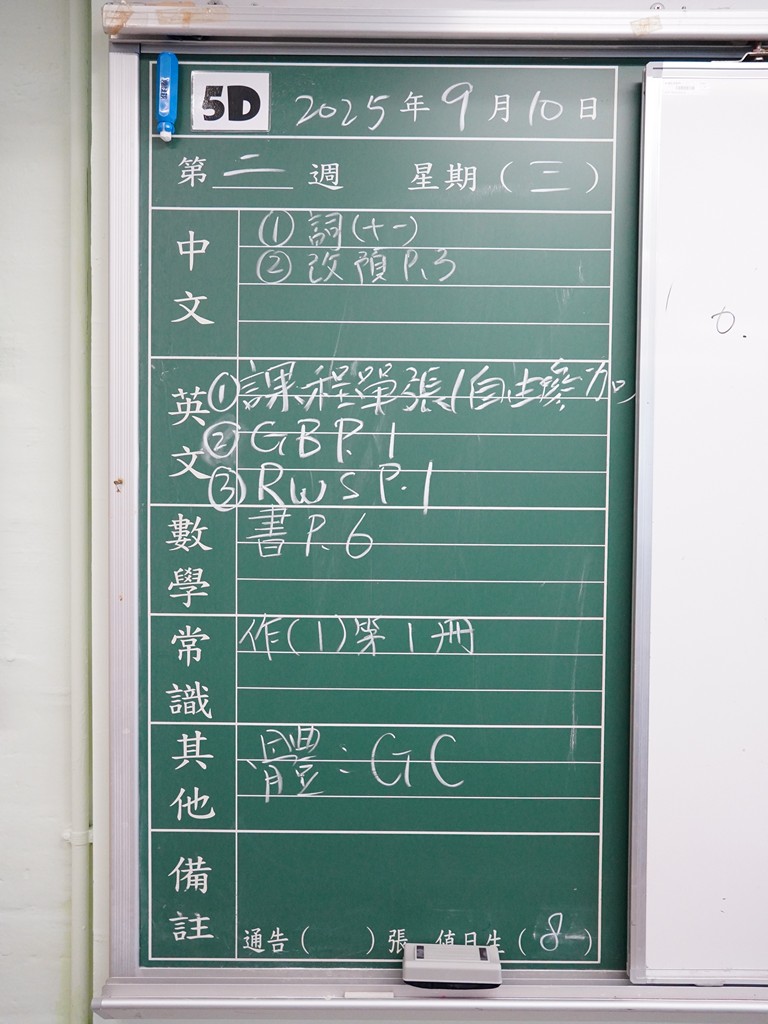 5D 2025年9月10日
第二週 星期(三)
中文
① 詞(十一)
② 改預 P.3
英文
① 課程單張/自由參加
② GB P. 1
③ RWS P. 1
數學
書 P. 6
常識
作(1)第1冊
其他
體：GC
備註
通告( )張 值日生(8)
0.